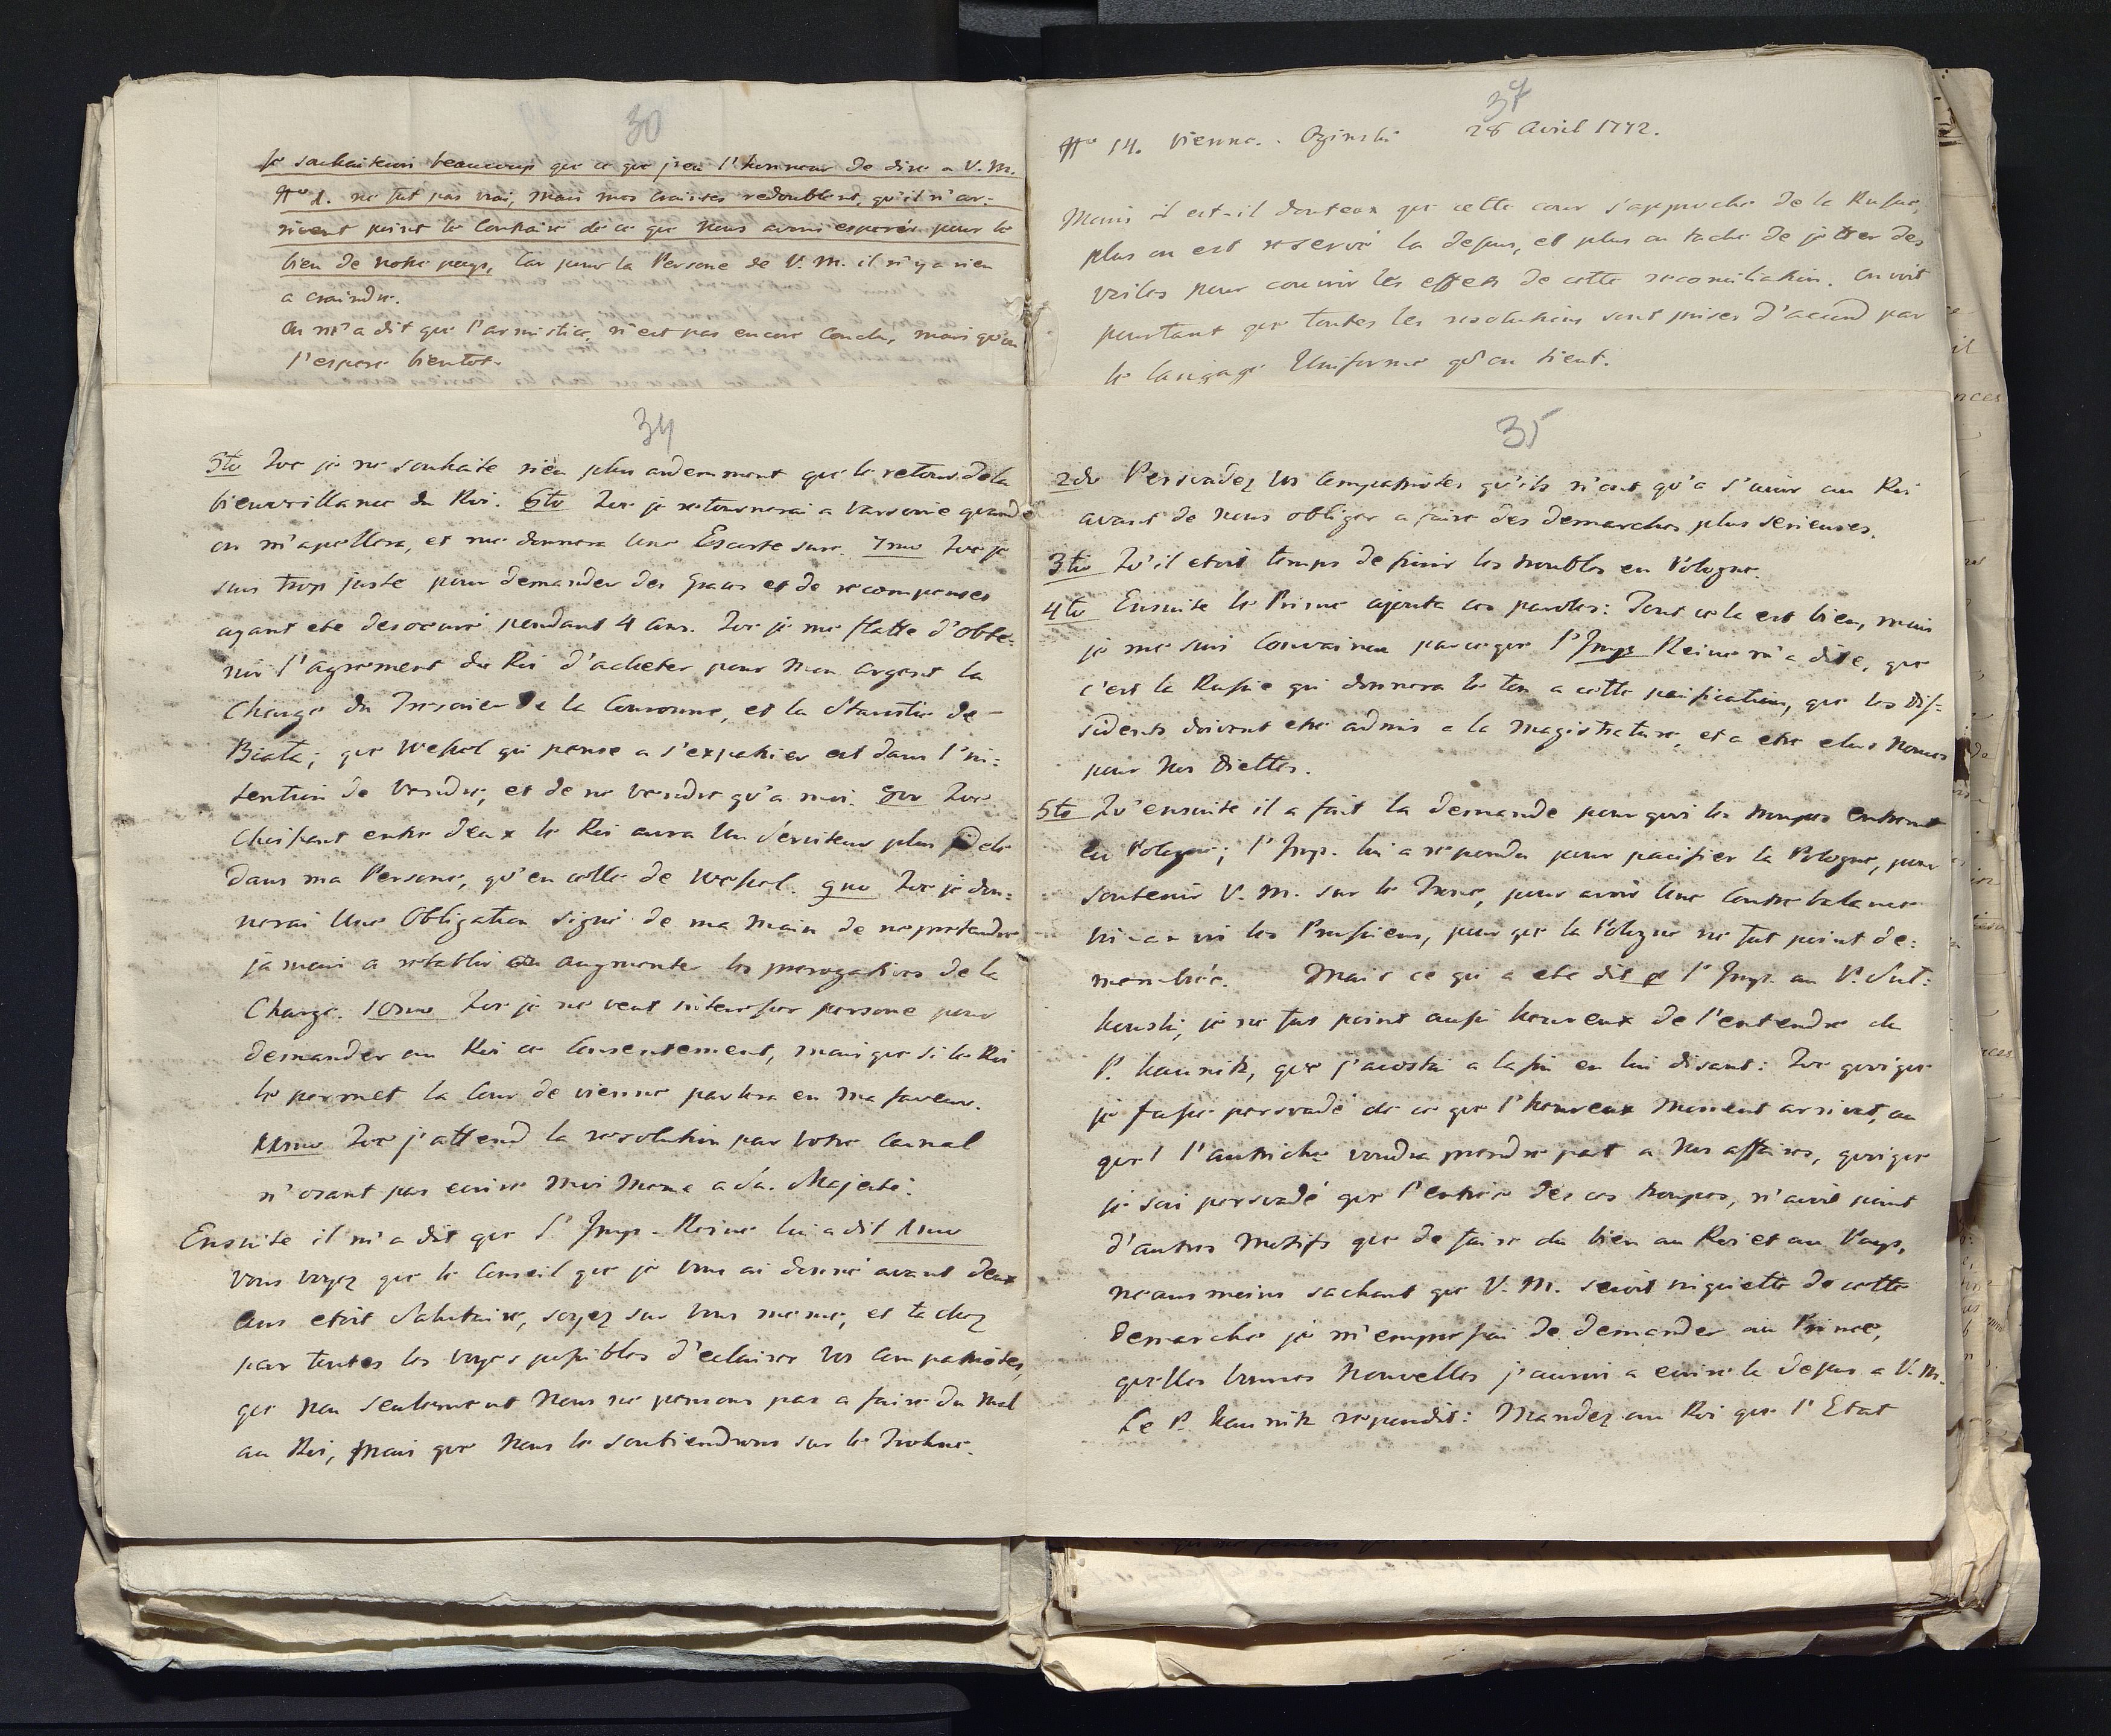 30
Je souhaiterai beaucoup que ce que j'eu l'honneur de dire a V. M.
Nro 1. ne fut pas vrai, mais mes craintes redoublent, qu'il n'ar-
rivent point le Contraire de ce que Nous avons esperés pour le
bien de notre pays, Car pour la Persone de V. M. il n'y a rien
a craindre.
On m'a dit que l'armistice, n'est pas encore Conclu, mais qu'on
l'espere bientot.
34
5to Que je ne souhaite rien plus ardemment que le retour de la
bienveillance du Roi. 6to Que je retournerai a Varsovie quand
on m'apellera, et me donnera Une Escorte sure. 7mo Que je
suis trop juste pour demander des graces et de recompenses
ayant ete desoeuvré pendant 4 ans. Que je me flatte d'obte-
nir l'agrement du Roi d'acheter pour Mon argent la
Charge du Tresorier de la Couronne, et la Starostie de
Biała; que Wessel qui pense a s'expatrier est dans l'in=
tention de Vendre, et de ne vendre qu'a moi. 8vo Que
Choisisant entre deux le Roi aura Un Serviteur plus fidele
dans ma Persone, qu'en celle de Wessel. 9no Que je don=
nerai Une Obligation signé de ma Main de ne pretendre
jamais a retablir ou augmenter les prerogatives de la
Charge. 10mo Que je ne veut interesser persone pour
demander au Roi ce Consentement, mais que si le Roi
le permet la Cour de vienne parlera en Ma faveur.
11mo Que j'attend la resolution par Votre Canal
n'osant pas ecrire Moi Meme a Sa Majesté.
Ensuite il m'a dit que l'Imp. Reine lui a dit 1mo
Vous voyez que le Conseil que je Vous ai donné avant deux
Ans etoit Salutaire, soyez sur Vous meme, et tachez
par toutes les voyes possibles d'eclairer Vos Compatriotes,
que Non seulement Nous ne pensons pas a faire du Mal
au Roi, Mais que Nous le soutiendrons sur le Trohne.
37
Nro 14. Vienne. Oginski 28 Avril 1772.
Moins il est-il douteux que cette cour s'approche de la Russie,
plus on est reservé la dessus, et plus on tache de jetter des
voiles pour couvrir les effets de cette reconciliation. On voit
pourtant que toutes les resolutions sont prises d'accord par
le langage Uniforme qu'on tient.
35
2do Persuadez Vos Compatriotes qu'ils n'ont qu'a s'unir au Roi
avant de Nous obliger a faire des demarches plus serieuses.
3to Qu'il etoit temps de finir les troubles en Pologne.
4to Ensuite le Prince ajouta ces paroles: Tout cela est bien, mais
je me suis Convaincu par ce que l'Imp. Reine m'a dite, que
c'est la Russie qui donnera le ton a cette pacification, que les diss=
sidents doivent etre admis a la Magistrature, et a etre elus Nonces
pour Nos Diettes.
5to Qu'ensuite il a fait la demande pourquoi les troupes entrent
en Pologne; l'Imp. lui a repondu pour pacifier la Pologne, pour
soutenir V. M. sur le Trone, pour avoir Une Contrebalance
vis-a-vis les Prussiens, pour que la Pologne ne fut point de=
membrée. Mais ce qui a ete dit p l'Imp. au P. Sul=
kowski, je ne fus point aussi heureux de l'entendre du
P. Kaunitz, que j'acostai a la fin en lui disant: Que quoique
je fusse persuadé de ce que l'heureux Moment arrivat, au
quel l'Autriche voudra prendre part a Nos affaires, quoique
je sois persuadé que l'entrée des ces troupes, n'avoit point
d'autres Motifs que de faire du bien au Roi et au Pays,
neansmoins sachant que V. M. seroit inquiette de cette
demarche je m'empressai de demander au Prince,
quelles bonnes Nouvelles j'aurois a ecrire la dessus a V. M.
Le P. Kaunitz repondit: Mandez au Roi que l'Etat